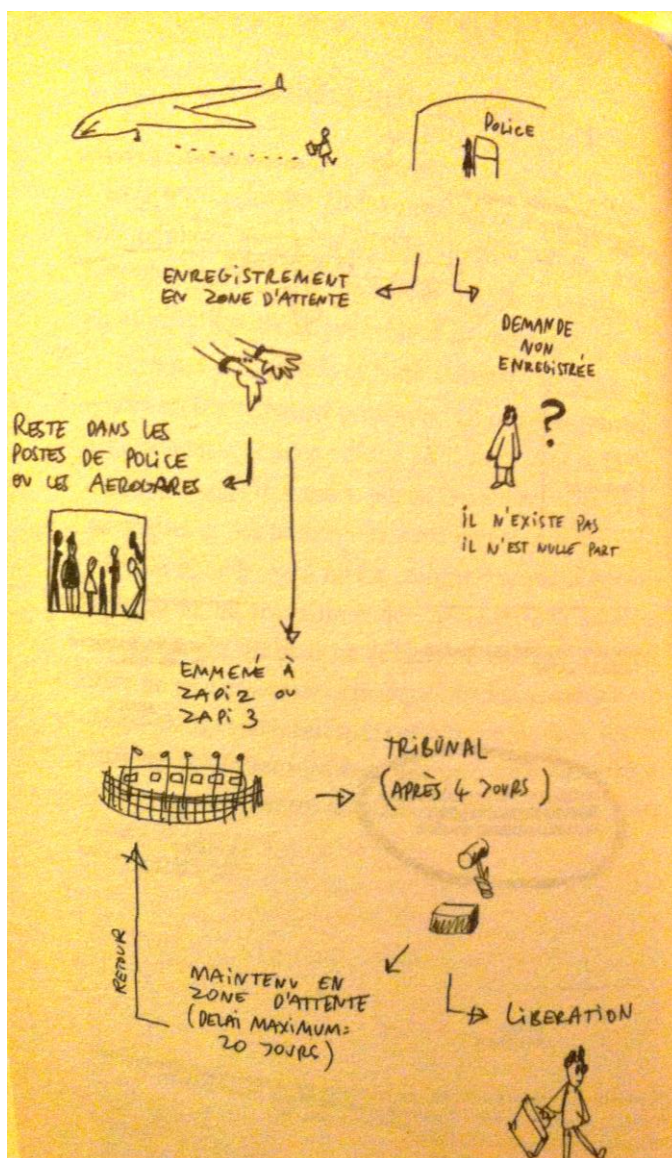 POLICE
ENREGISTREMENT
EN ZONE D'ATTENTE
DEMANDE
NON
ENREGISTRÉE
?
RESTE DANS LES
POSTES DE POLICE
EN LES AEROGARES
IL N'EXISTE PAS
IL N'EST NULLE PART
EMMENÉ À
ZAPI 2 OU
ZAPI 3
TRIBUNAL
(APRÈS 4 JOURS)
RETOUR
MAINTENU EN
ZONE D'ATTENTE
(DELAI MAXIMUM=
20 JOURS)
LIBERATION